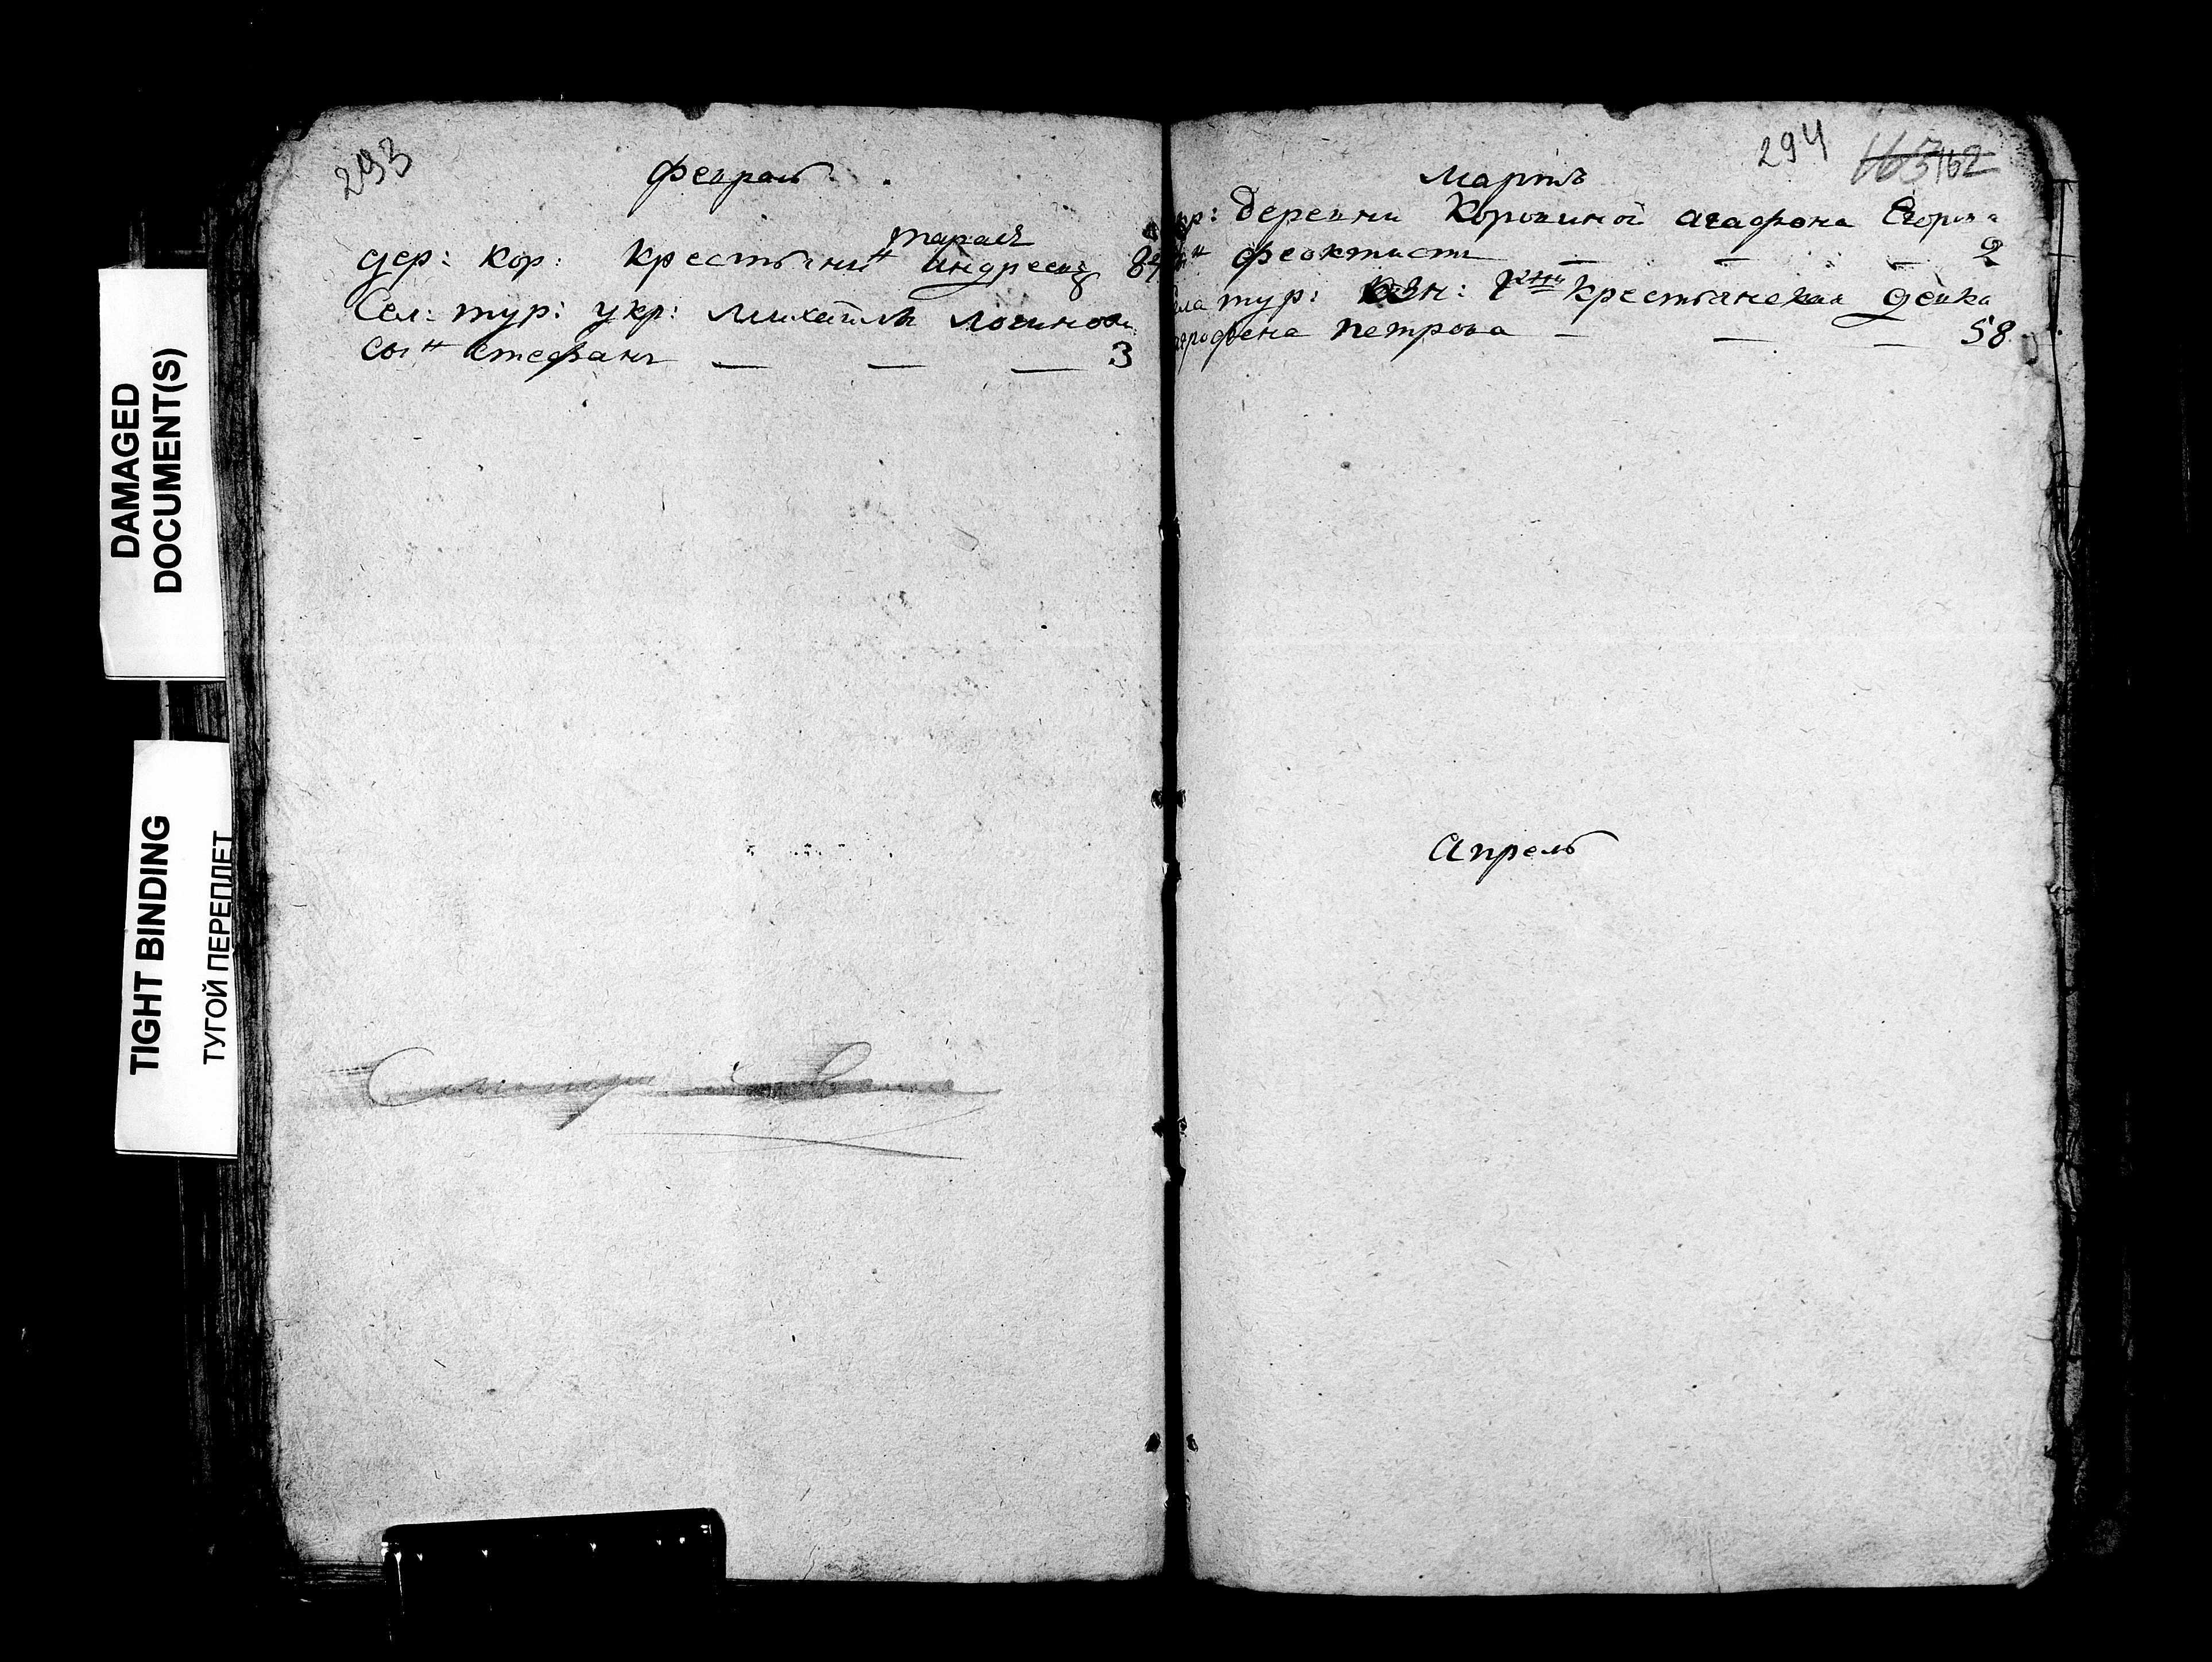 DAMAGED
DOCUMENT(S)
TIGHT BINDING
ТУГОЙ ПЕРЕПЛЕТ
293
февраль
тарасъ
дер: кор: крестьянинъ андреевъ 84
Сел: тур: укр: михайла логинова
сынъ стефанъ — — — 3
294 165 162
мартъ
укр: деревни Коровиной агафона Егорова
сынъ феоктистъ — — — 2
села тур: крестьянская девка
петрова — — — 58
Апрель